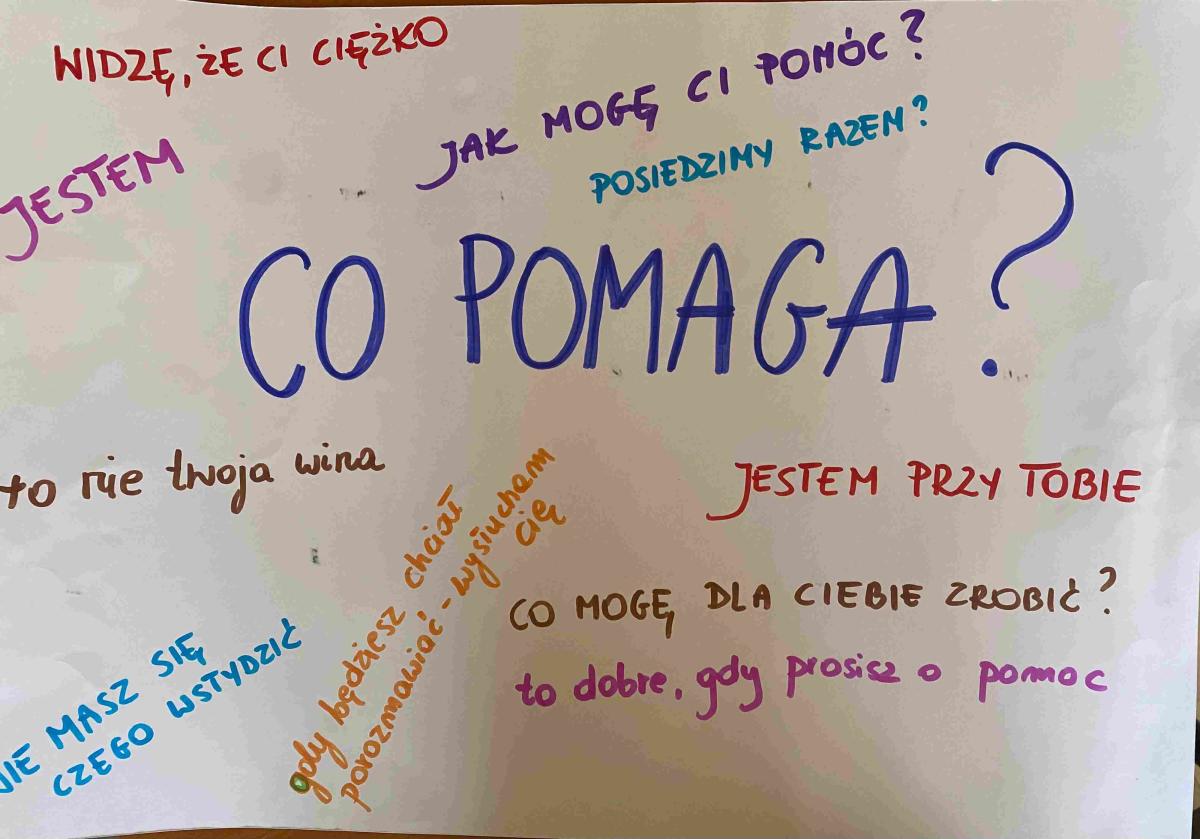 WIDZĘ, ŻE CI CIĘŻKO
JAK MOGĘ CI POMÓC?
POSIEDZIMY RAZEM?
JESTEM
CO POMAGA?
to nie twoja wina
JESTEM PRZY TOBIE
gdy będziesz chciał
porozmawiać - wysłucham
cię
CO MOGĘ DLA CIEBIE ZROBIĆ?
to dobre, gdy prosisz o pomoc
NIE MASZ SIĘ
CZEGO WSTYDZIĆ